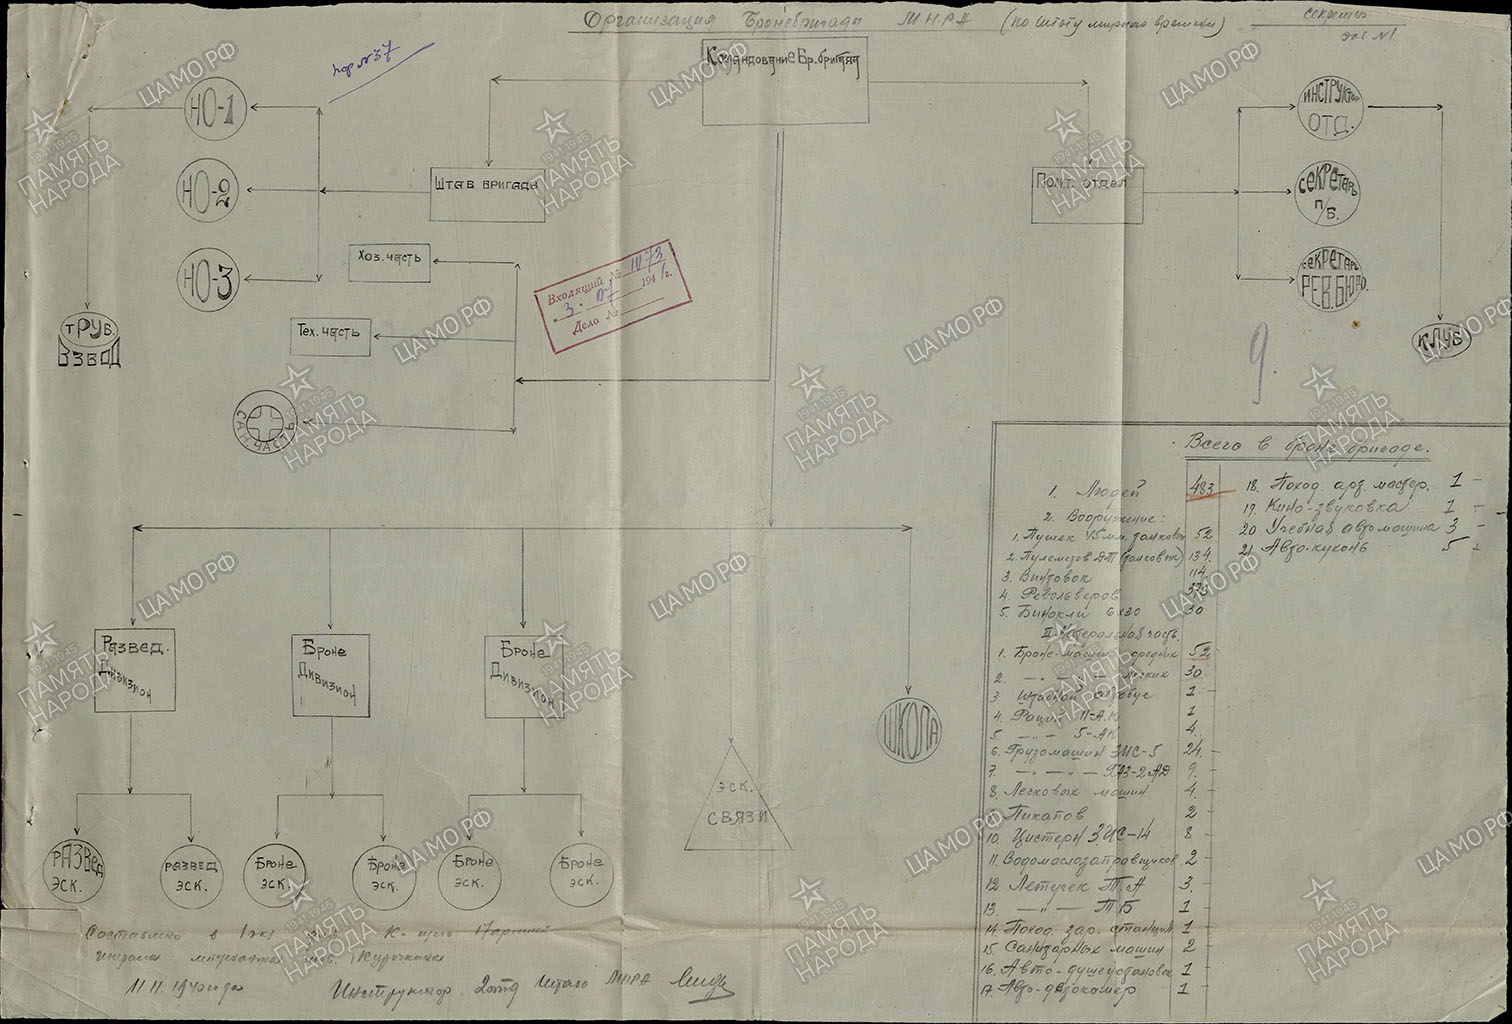 Организация Бронебригады М.Н.Р.А (по штату мирного времени)
секретно
экз №1
Командование Бр. бригады
НО-1
НО-2
НО-3
Труб.
взвод
Штаб бригады
Хоз. часть
Тех. часть
Сан. часть
Входящий № 1073
3. 194 г.
Дело №
Полит. отдел
Инструктор
отд.
Секретарь
п/б.
Секретарь
Рев. бюро.
Клуб
9
Развед.
Дивизион
Броне
Дивизион
Броне
Дивизион
Школа
эск.
связи
Развед
эск.
развед
эск.
Броне
эск.
Броне
эск.
Броне
эск.
Броне
эск.
Всего в броне бригаде.
1. Людей 483
2. Вооружение:
1. Пушек 45 мм. танковых 52
2. Пулеметов ДТ (танковых) 134.
3. Винтовок 114
4. Револьверов
5. Бинокли 6х30 30
II Материальная часть.
1. Броне-машин средних 52
2. — " — " — легких 30
3. Штабной автобус 1 -
4. Рация 11-АК 1
5. — " — 5-АК 4.
6. Грузомашин ЗИС-5 24. -
7. — " — " — ГАЗ-2АД 9. -
8. Легковых машин 4. -
9. Пикапов 2 -
10. Цистерн ЗИС-14 8 -
11. Водомаслозаправщиков 2 -
12. Летучек Т.А 3. -
13. — " — ТБ 1 -
14. Поход. зар. станция 1 -
15. Санитарных машин 2 -
16. Авто-душеустановок 1 -
17. Авто-дезокамер 1 -
18. Поход. арт. мастер. 1 -
19. Кино-звуковка 1 -
20. Учебная автомашина 3 -
21. Авто-кухонь 5 -
Составлено в 1 экз
тов. Курочкина
11.11. 1940 года
Инструктор 2 отд Штаба МНРА
ЦА МО РФ
1941-1945
ПАМЯТЬ
НАРОДА